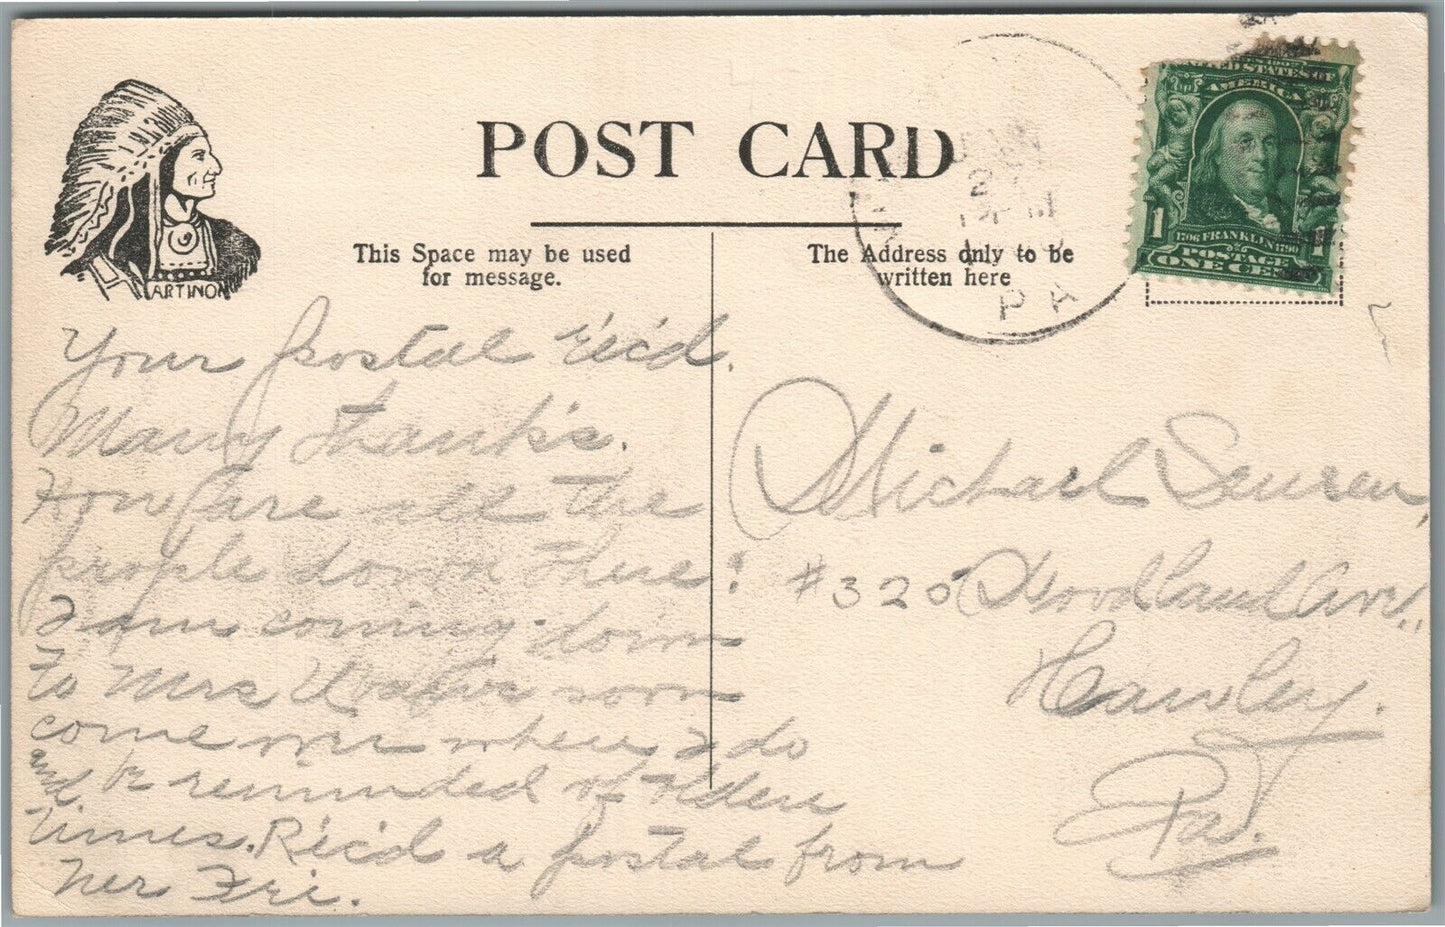 POST CARD
ARTINO
This Space may be used
for message.
The Address only to be
written here
UNITED STATES OF
AMERICA
1
1
1706 FRANKLIN 1790
POSTAGE
ONE CE
PA
Your postal Rec'd.
Many thanks.
How are all the
people down there?
I am coming down
to Mrs soon
come over when I do
and be reminded of olden
times. Rec'd a postal from
her Fri.
Michael
#320 Woodland Ave.,
Hawley.
Pa.